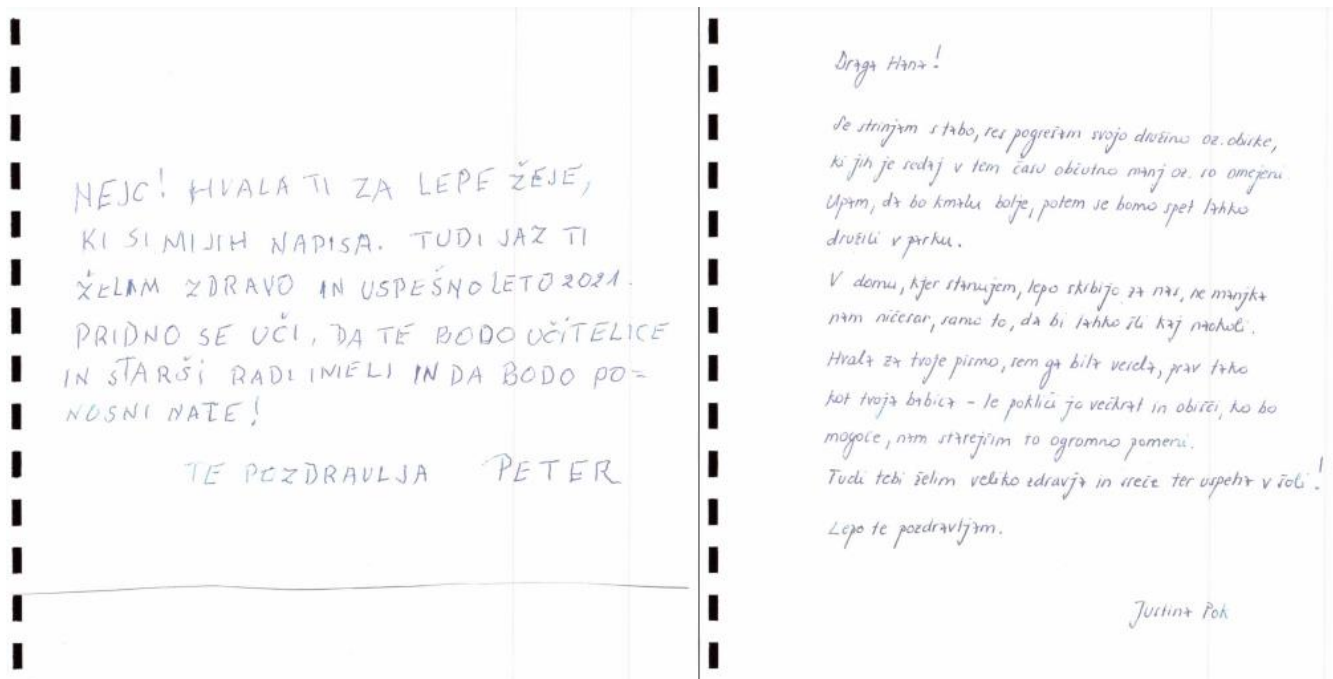 NEJC! HVALA TI ZA LEPE ŽEJE,
KI SI MI JIH NAPISA. TUDI JAZ TI
ŽELAM ZDRAVO IN USPEŠNO LETO 2021.
PRIDNO SE UČI, DA TE BODO UČITELICE
IN STARŠI RADI IMELI IN DA BODO PO=
NOSNI NATE!
TE POZDRAVLJA PETER
Draga Hana!
Se strinjam s tabo, res pogrešam svojo družino oz. obiske,
ki jih je sedaj v tem času občutno manj oz. so omejeni.
Upam, da bo kmalu bolje, potem se bomo spet lahko
družili v parku.
V domu, kjer stanujem, lepo skrbijo za nas, ne manjka
nam ničesar, samo to, da bi lahko šli kaj naokoli.
Hvala za tvoje pismo, sem ga bila vesela, prav tako
kot tvoja babica - le pokliči jo večkrat in obišči, ko bo
mogoče, nam starejšim to ogromno pomeni.
Tudi tebi želim veliko zdravja in sreče ter uspeha v šoli!
Lepo te pozdravljam.
Justina Pok